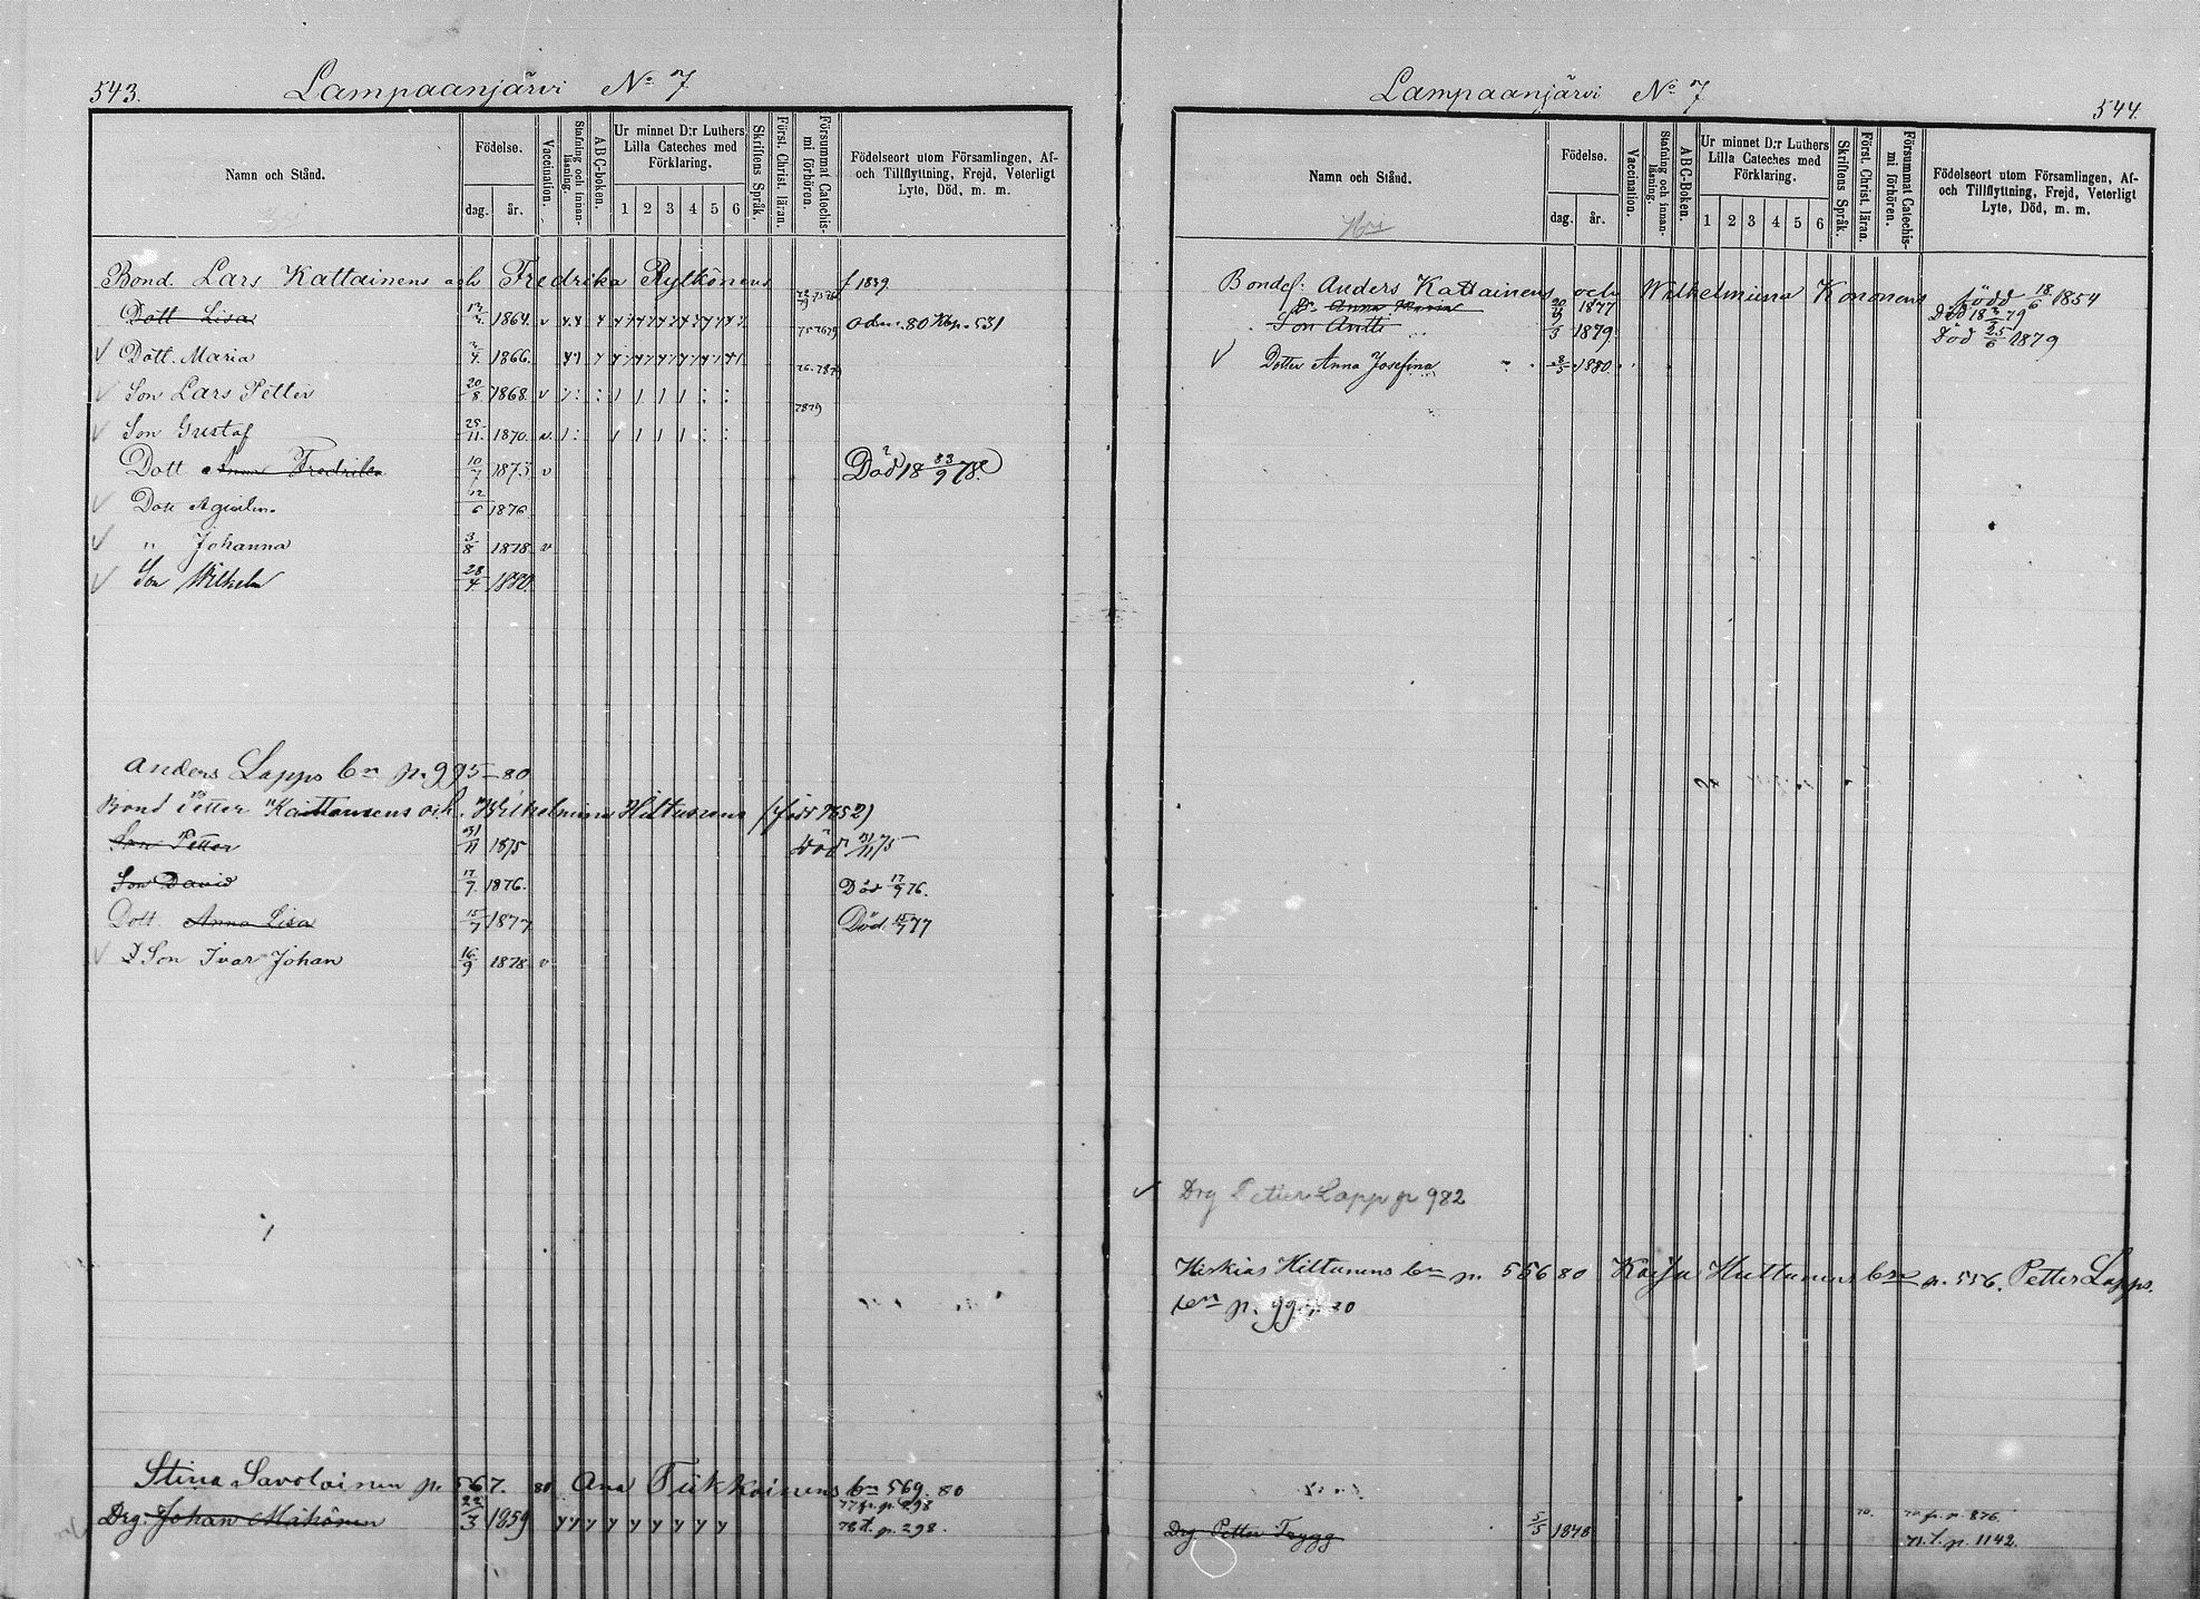 543.
Lampaanjärvi No 7
Namn och Stånd.
Födelse.
dag.
år.
Vaccination.
Stafning och innan-läsning.
ABC-boken.
Ur minnet D:r Luthers Lilla Cateches med Förklaring.
1 2 3 4 5 6
Skriftens Språk.
Först. Christ. läran.
Försummat Catechis-mi förhören.
Födelseort utom Församlingen, Af-
och Tillflyttning, Frejd, Veterligt
Lyte, Död, m. m.
Bond. Lars Kattainens och Fredrika Rytkönens f 1839
Dott Lisa 1864. v
Dött. Maria 1866.
Son Lars Petter 20/8 1868. v
Son Gustaf 25/11. 1870. v.
Dott Anna Fredrika 10/7 1873 v
Dott 12/6 1876
" Johanna 3/8 1878 v
Son Wilhelm 28/4 1880.
Anders Lapps bn p. 995-80
Bond Petter Kattainens och Wilhelmina Hiltunens (född 1852)
Son Petter 1875 Död
Son David 17/9. 1876. Död 17/9 76.
Dott. Anna Lisa 15/7 1877 Död 15/7 77
Son Ivar Johan 16/9 1878 v
Stina Savolainen p. 567. 80 Ana Tiikkainens bn 569. 80
77 fr. p. 298
Drg. Johan Mähönen 22/3 1859 78 t. p. 298.
Lampaanjärvi No 7
544.
Namn och Stånd.
Födelse.
dag.
år.
Vaccination.
Stafning och innan-läsning.
ABC-Boken.
Ur minnet D:r Luthers Lilla Cateches med Förklaring.
1 2 3 4 5 6
Skriftens Språk.
Först. Christ. läran.
Försummat Catechis-mi förhören.
Födelseort utom Församlingen, Af-
och Tillflyttning, Frejd, Veterligt
Lyte, Död, m. m.
Bondes: Anders Kattainens och Wilhelmina Kononens född 18/6 1854
D. Anna Maria 1877
Son Antti 1879. Död 25/6 1879
Dotter Anna Josefina 1880.
Drg Petter Lapp p 982
Hiskias Hiltunens bn p. 556 80 Kaisa Huttunens bn p. 556. Petter Lapps
bn p. 80
Drg Petter Trygg 5/5 1848 70. 70 fr. p. 876.
71. t. p. 1142.